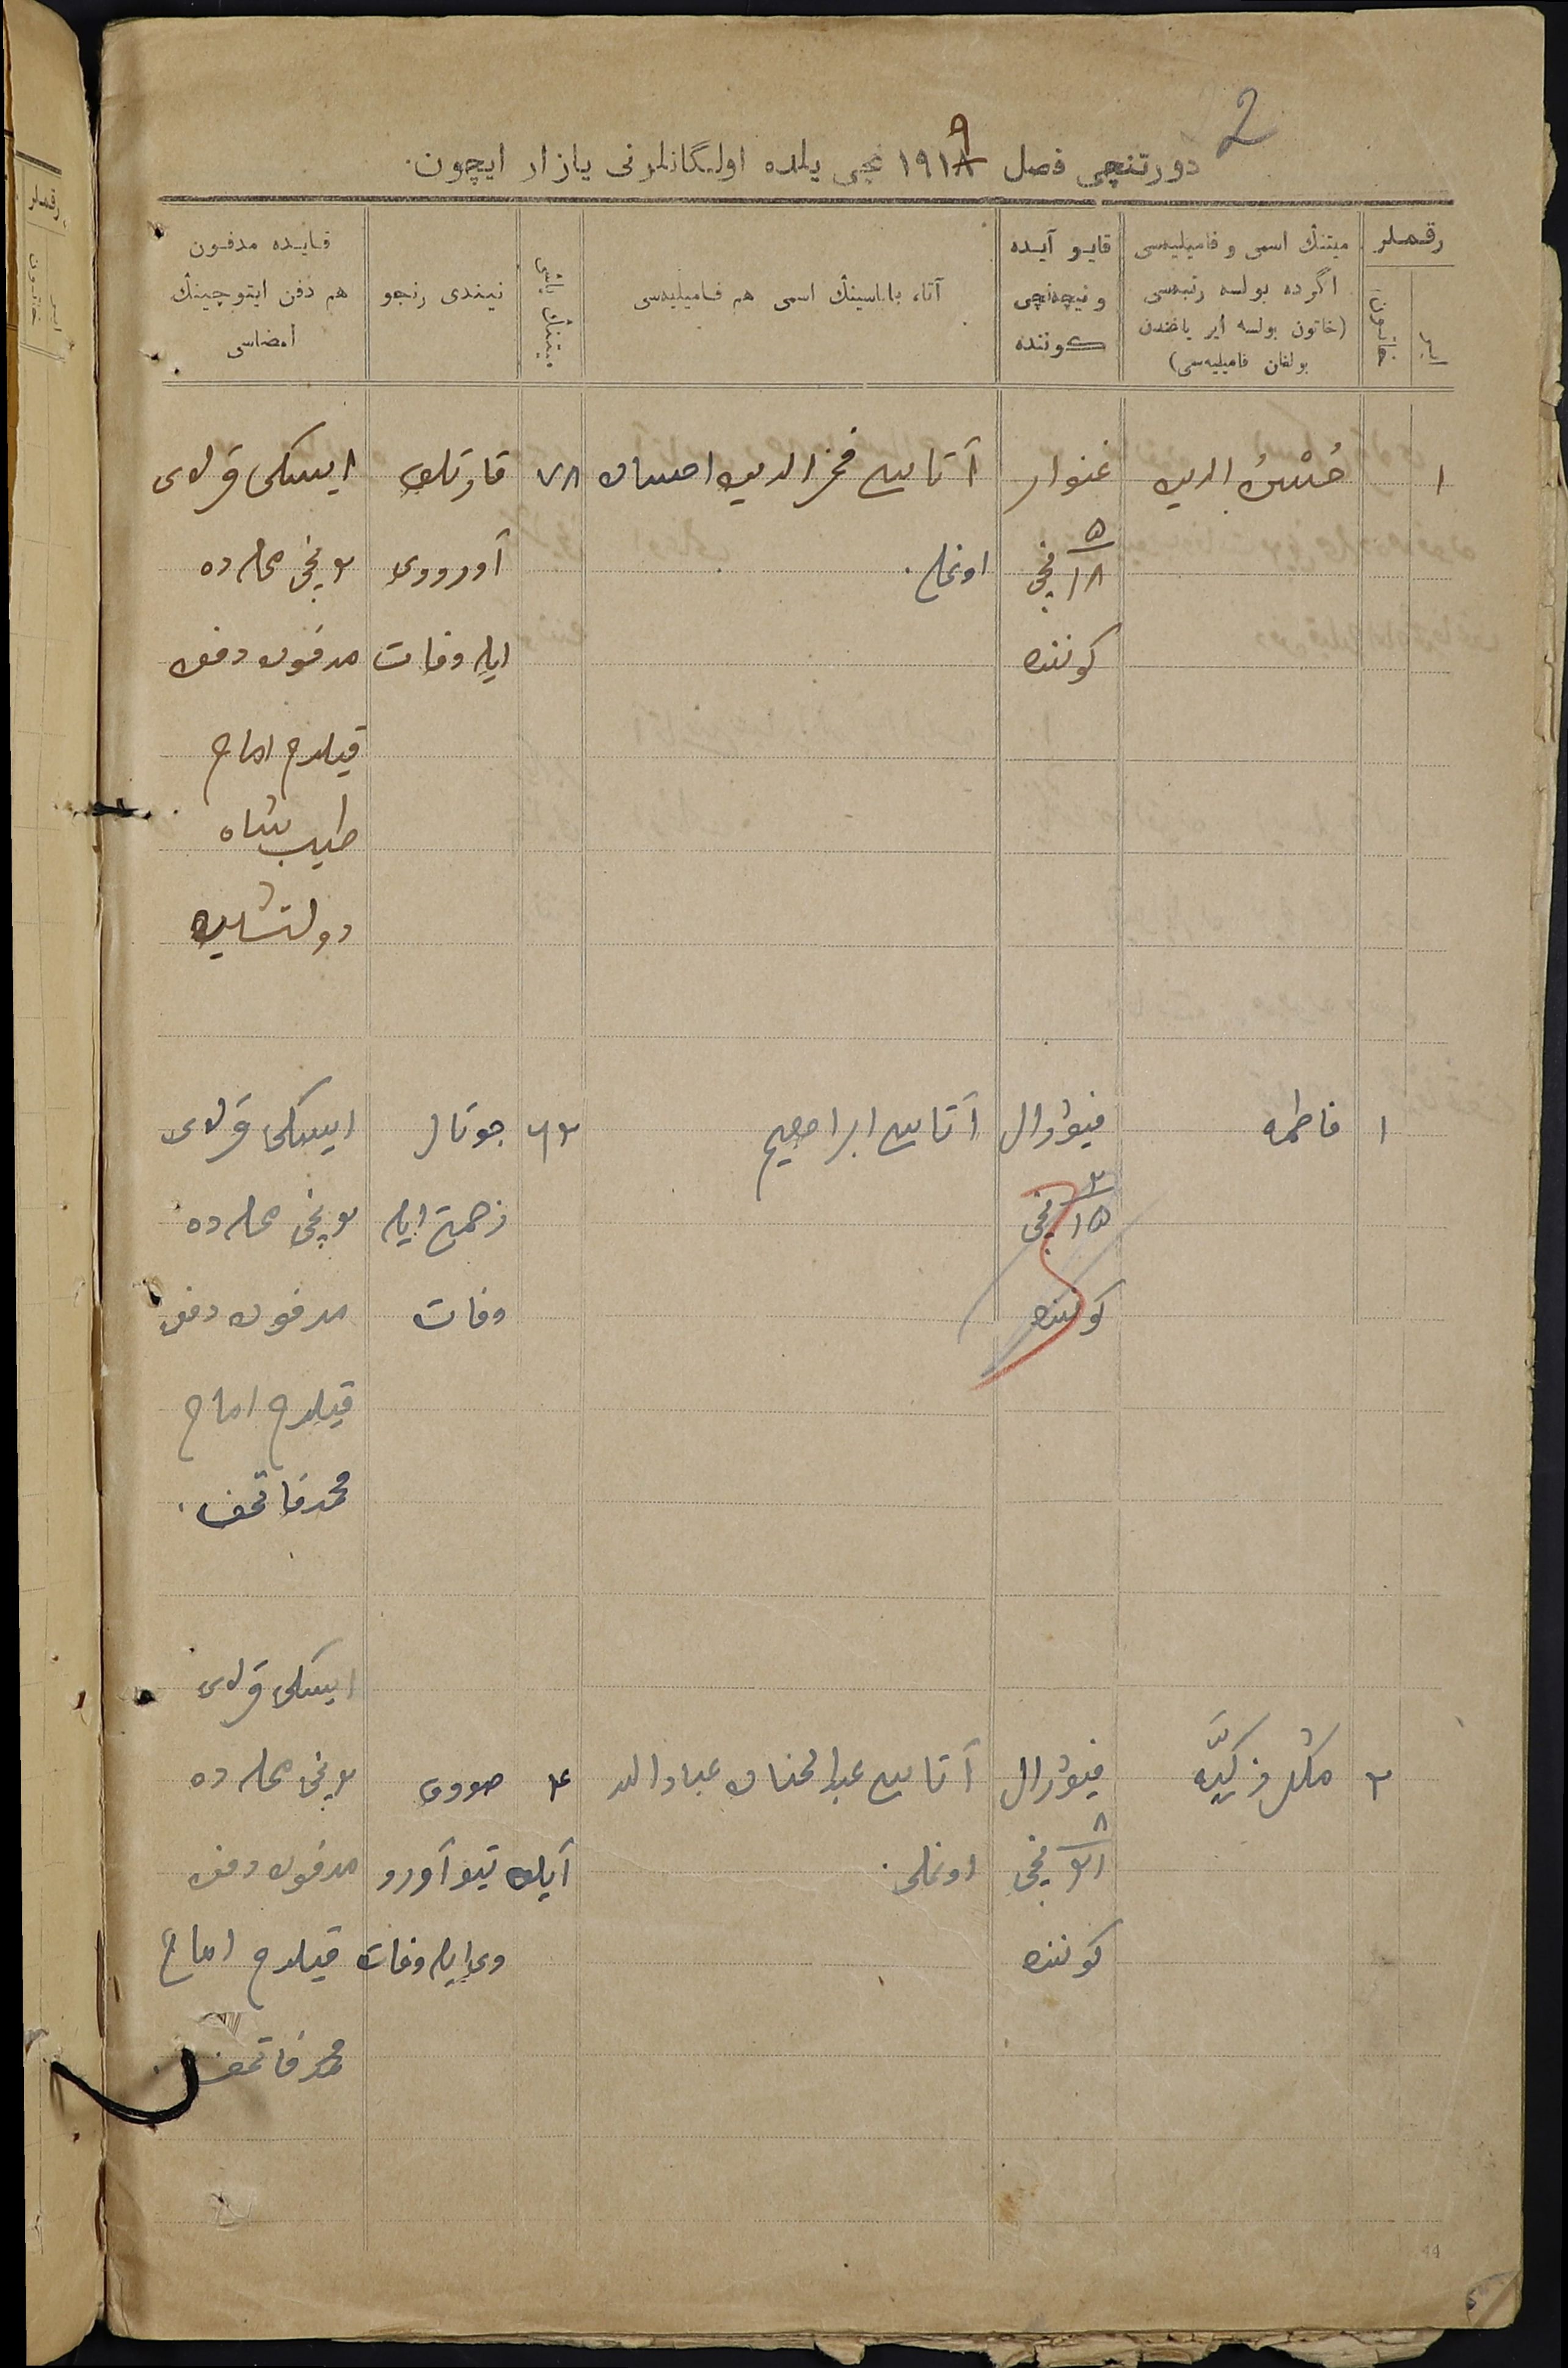 2
دورتنچی فصل ۱۹۱۹ نچی یلده اولگانلرنی یازار ایچون.
رقملر
ایر
خاتون
میتنڭ اسمی و فامیلیەسی
اگرده بولسه رتبەسی
(خاتون بولسه ایر یاغندن
بولغان فامیلیەسی)
قایو آیده
و نیچەنچی
کوننده
آتا، باباسینڭ اسمی هم فامیلیەسی
میتنڭ یاشی
نیندی رنجو
قایده مدفون
هم دفن ایتوچینڭ
أمضاسی
۱
حُسْنُ الدین
غنوار
۵
۱۸ نچی
کوننده
آتاسی فخرالدین احسان
اوغلی.
۷۸
قارتلق
آورووی
ایله وفات
ایسکی قرلای
۲ نچی محله ده
مدفون دفن
قیلدم امام
طیب شاه
دولتشین
۱
فاطمه
فیورال
۲
۱۵ نچی
کوننده
آتاسی ابراهیم
۶۲
جوتال
زحمتی ایله
وفات
ایسکی قرلای
۲ نچی محله ده
مدفون دفن
قیلدم امام
محمد فاتحف.
۲
زکیَّه
فیورال
۸
۲۱ نچی
کوننده
آتاسی عبدالحنان عبادالله
اوغلی.
۴
آیلق
تیو آورو
وی ایله وفات
ایسکی قرلای
۲ نچی محله ده
مدفون دفن
قیلدم امام
محمد فاتحف
44